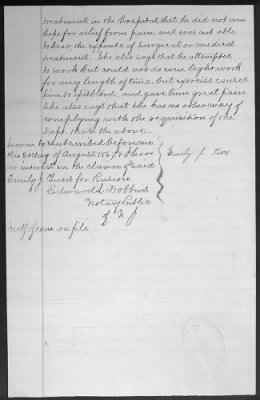 treatment in the hospital, that he did not have
hope for relief from pain and was not able
to bear the expense of surgical or medical
treatment. She also says that he attempted
to work but could not do even light work
for any length of time. but exercise caused
him to spit blood, and gave him great pain
She also says that she has no other way of
complying with the requisition of the
Dept. than the above.
Sworn to & subscribed before me
this day of August & I have
no interest in the claim of said
Emily J. for Pension
Edward Dobbins
Notary Public
of N J
Emily J.
Certf of on file